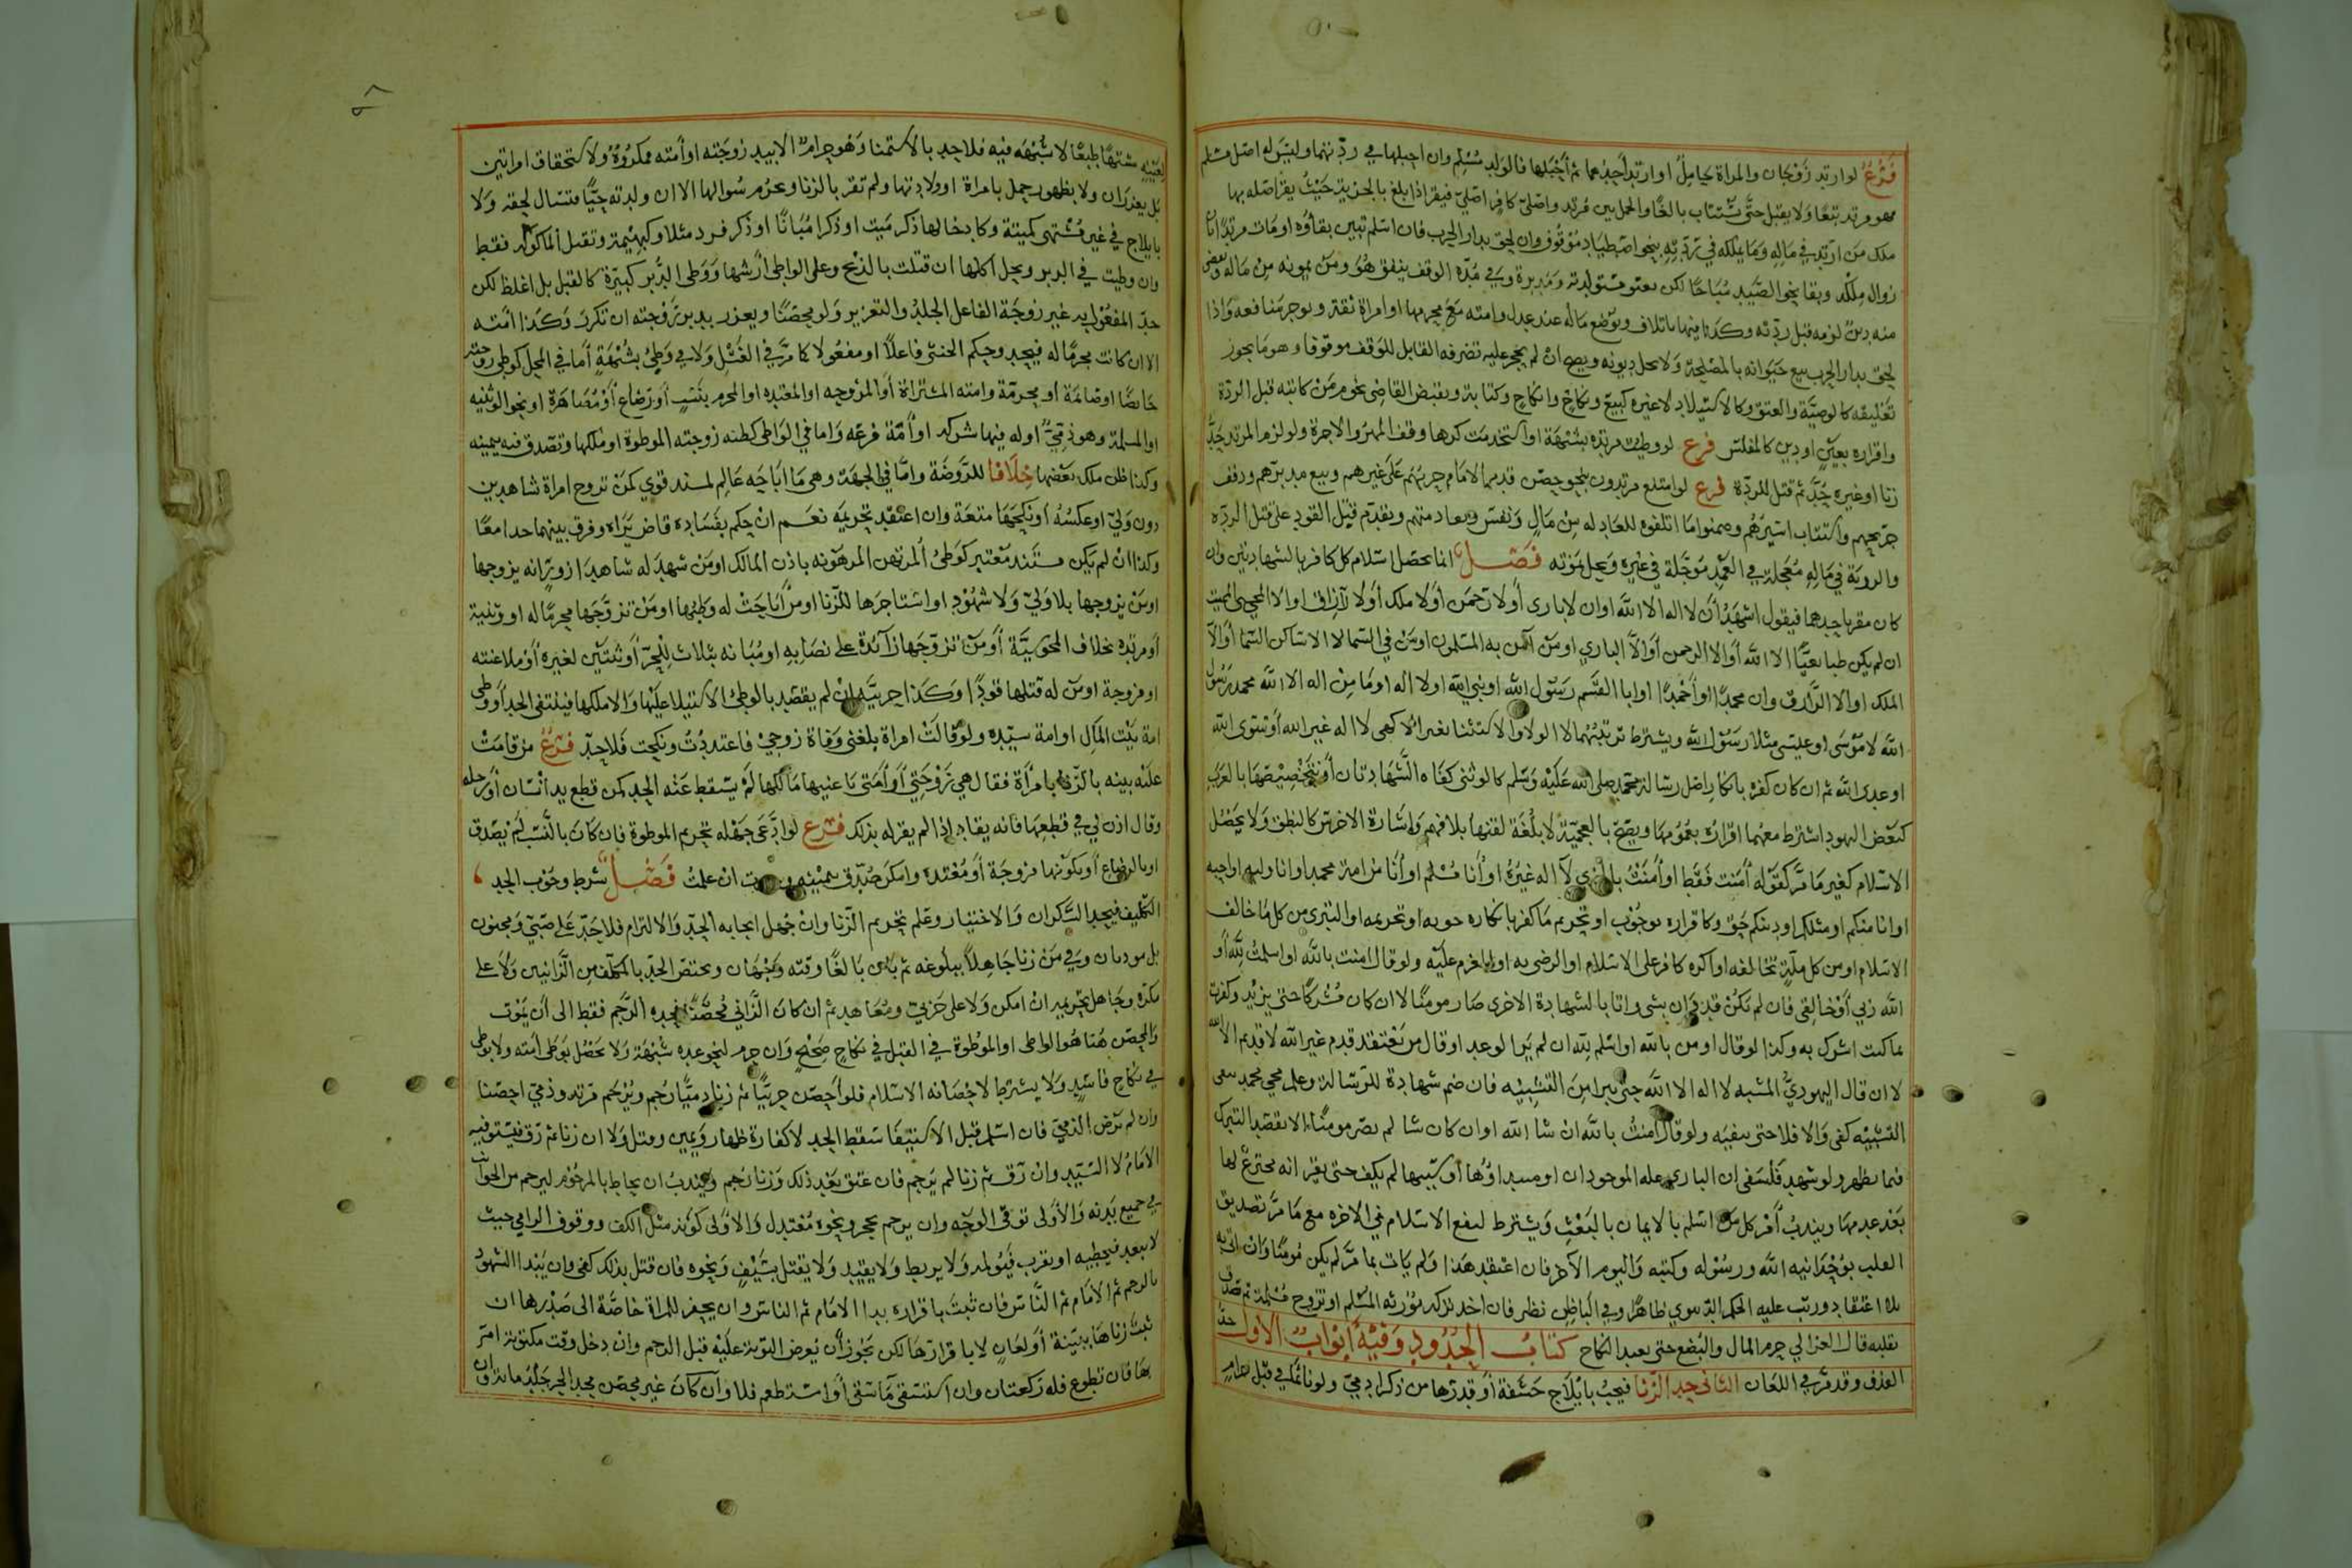 فرع لو ارتد زوجان والمراة حامل او ارتد احدهما ثم احبلها فالولد مسلم وان احبلها في ردتهما وليس له اصل مسلم
فهو مرتد تبعا ولا يقتل حتى يستتاب بالغا والحمل بين مرتد واصلي كافر اصلي فيقر اذا بلغ بالجزية حيث يقر اصله بها
ملك من ارتد في ماله وما يملكه في ردته بنحو اصطياد موقوف وان لحق بدار الحرب فان اسلم تبين بقاؤه او مات مرتدا بان
زوال ملكه وبقا نحو الصيد مباحا لكن مستولدته ومدبرة وفي مدة الوقف ينفق هو ومن يمونه من ماله
منه دين لزمه قبل ردته وكذا فيها باتلاف ويوضع ماله عند عدل وامته مع محرمها او امراة ثقة ويوجر منافعه واذا
لحق بدار الحرب بيع حيوانه بالمصلحة ولا يحل ديونه ويصح ان لم يحجر عليه تصرفه القابل للوقف موقوفا وهو ما يجوز
تعليقه كالوصية والعتق وكالاستيلاد لا غيره كبيع ونكاح وانكاح وكتابة ويقبض القاضي نجوم من كاتبه قبل الردة
واقراره بعين او دين كالمفلس فرع لو وطيت مرتدة بشبهة او استخدمت كرها وقف المهر والاجرة ولو لزم المرتد حد
زنا او غيره حد ثم قتل للردة فرع لو امتنع مرتدون بنحو حصن قدم الامام حربهم على غيرهم وبيع مدبرهم ودفف
جريحهم واستتاب اسيرهم وضمنوا ما اتلفوه للعادل من مال ونفس ويقدم قتل القود على قتل الردة
والدية في ماله معجلة في العمد مؤجلة في غيره ويحل بموته فصل انما يحصل اسلام كل كافر بالشهادتين وان
كان مقرا باحدهما فيقول اشهد ان لا اله الا الله او ان لا باري او لا رحمن او لا ملك او لا رازق او الا المحيي المميت
ان لم يكن طبايعيا الا الله او الا الرحمن او الا الباري او من امن به المسلمون او من في السما لا الا ساكن السما او الا
الملك او الا الرازق وان محمدا او احمدا او ابا القسم رسول الله او نبي الله او لا اله او ما من اله الا الله محمد رسول
الله لا موسى او عيسى مثلا رسول الله ويشترط ترتيبهما لا الولا والاستثنا بغير الا كهي لا اله غير الله او سوى الله
او عدى الله ثم ان كان كفره بانكار اصل رسالة محمد صلى الله عليه وسلم كالوثني كفاه الشهادتان او بتخصيصها بالعرب
كبعض اليهود اشترط معهما اقراره بعمومها ويصح بالعجمية لا بلغة لقنها بلا فهم واشارة الاخرس كالنطق ولا يحصل
الاسلام كغير ما مر كقوله امنت فقط او امنت بالذي لا اله غيره او انا مسلم او انا من امة محمد او انا وليه او احبه
او انا منكم او مثلكم او دينكم حق وكاقراره بوجوب او تحريم ما كفر بانكاره او تحريمه او التبري من كل ما خالف
الاسلام او من كل ملة تخالفه او اكره كافر على الاسلام او الرضى به او العزم عليه ولو قال امنت بالله او اسلمت لله او
الله ربي او خالقي فان لم يكن قد دان بشي واتا بالشهادة الاخرى صار مومنا لا ان كان مشركا حتى يزيد وكفرت
بما كنت اشرك به وكذا لو قال اومن بالله او اسلم لله ان لم يرد الوعد او قال من يعتقد قدم غير الله لا قديم الا الله
لا ان قال اليهودي المشبه لا اله الا الله حتى يبرا من التشبيه فان ضم شهادة للرسالة وعلم مجي محمد بنفي
التشبيه كفى والا فلا حتى ينفيه ولو قال امنت بالله ان شا الله او ان كان شا لم يصر مومنا الا بقصد التبرك
فيما يظهر ولو شهد فلسفي ان الباري علة الموجودات او مبداؤها او سببها لم يكف حتى يقر انه مخترع لها
بعد عدمها ويندب امر كل من اسلم بالايمان بالبعث ويشترط لنفع الاسلام في الاخرة مع ما مر تصديق
القلب بوحدانية الله ورسوله وكتبه واليوم الاخر فان اعتقد هذا ولم يات بما مر لم يكن مومنا وان اتى به
بلا اعتقاد ورتب عليه الحكم الدنيوي ظاهرا وفي الباطن نظر فان اخذ بذكره مورثه المسلم او تزوج مسلمة ثم صدق
بقلبه قال الغزالي حرم المال والبضع حتى يعيد النكاح كتاب الحدود وفيه ابواب الاول حد
القذف وقد مر في اللعان الثاني حد الزنا فيجب بايلاج حشفة او قدرها من ذكر ادمي ولو نائما في قبل حرام
لعينه مشتها طبعا لا شبهه فيه فلا حد بالاستمنا وهو حرام الا بيد زوجته او امته فمكروه ولا كاستحقاق امراتين
بل يعزران ولا بظهور حمل بامراة او ولادتها ولم تقر بالزنا وحرم سوالها الا ان ولدته حيا فتسال لحقه ولا
بايلاج في غير مشتهى كميتة وكادخالها ذكر ميت او ذكرا مبانا او ذكر قرد مثلا وكبهيمة وتقبل الماكولة فقط
وان وطيت في الدبر ويحل اكلها ان قتلت بالذبح وعلى الواطي ارشها ووطي الدبر كبيرة كالقبل بل اغلظ لكن
حد المفعول به غير زوجة الفاعل الجلد والتغرير ولو محصنا ويعزر بدبر زوجته ان تكرر وكذا امته
الا ان كانت محرما له فيحد وحكم الخنثى فاعلا او مفعولا كما مر في الغسل ولا في وطي بشبهة اما في المحل كوطي زوجته
حايضا او صايمة او محرمة وامته المشتراة او المزوجه او المعتده او المحرم بنسب او رضاع او مصاهرة او نحو الوثنيه
او المسلمة وهو ذمي او له فيها شرك او امة فرعه واما في الواطي كظنه زوجته الموطوة او ملكها وتصدق فيه بيمينه
وكذا ظن ملك بعضها خلافا للروضة واما في الجهة وهي ما اباحه عالم لمستند قوي كمن تزوج امراة شاهدين
دون ولي او عكسه او نكحها متعة وان اعتقد تحريمه نعم ان حكم بفساده قاض يراه وفرق بينهما حدا معا
وكذا ان لم يكن مستند معتبر كوطئ المرتهن المرهونه باذن المالك او من شهد له شاهدا زور انه يزوجها
او من يزوجها بلا ولي ولا شهود او استاجرها للزنا او من اباحت له وطيها او من تزوجها محرما له او وثنية
او مرتدة بخلاف المجوسية او من تزوجها زائدة على نصابه او مبانه بثلاث للحر او ثنتين لغيره او ملاعنته
او مزوجة او من له قتلها قودا وكذا حربية ان لم يقصد بالوطئ الاستيلا عليها والا ملكها فينتفي الحد او وطي
امة بيت المال او امة سيده ولو قالت امراة بلغني وفاة زوجي فاعتددت ونكحت فلا حد فرع من قامت
عليه بينه بالزنا بامراة فقال هي زوجتي او امتى باعنيها مالكها لم يسقط عنه الحد كمن قطع يد انسان او رجله
وقال اذن لي في قطعها فانه يقاد اذا لم يقر له بذلك فرع لو ادعى جهله تحريم الموطوة فان كان بالنسب لم يصدق
او بالرضاع او بكونها مزوجة او معتدة وامكن صدق بيمينه ان علمت فصل شرط وجوب الحد
التكليف فيحد السكران والاختيار وعلم تحريم الزنا وان جهل ايجابه الحد والالتزام فلا حد على صبي ومجنون
بل يودبان وفي من زنا جاهلا ببلوغه ثم بان بالغا وقته وجهان ويختص الحد بالمكلف من الزانيين ولا على
مكره وجاهل تحريم ان امكن ولا على حربي ومعاهد ثم ان كان الزاني محصنا فحده الرجم فقط الى ان يموت
والمحصن هنا هو الواطى او الموطوة في القبل في نكاح صحيح وان حرم لنحو عدة شبهة ولا يحصل بوطى امته ولا بوطى
في نكاح فاسد ولا يشترط لاحصانه الاسلام فلو احصن حربيا ثم زنا ذميا رجم ويرجم مرتد وذمي احصنا
وان لم يرض الذمي فان اسلم قبل الاستيفا سقط الحد لا كفارة ظهار ويمين وقتل ولا ان زنا ثم رق فيستوفيه
الامام لا السيد وان رق ثم زنا لم يرجم فان عتق بعد ذلك وزنا رجم ويندب ان يحاط بالمرجوم ليرجم من الجوانب
في جميع بدنه والاولى توقي الوجه وان يرجم بحجر ونحوه معتدل والاولى كونه مثل الكف ووقوف الرامي حيث
لا يبعد فيخطيه او يقرب فيولمه ولا يربط ولا يقيد ولا يقتل بسيف ونحوه فان قتل بذلك كفى وان يبدا الشهود
بالرجم ثم الامام ثم الناس فان ثبت باقراره بدا الامام ثم الناس وان يحفر للمراة خاصة الى صدرها ان
ثبت زناها ببينة او لعان لا باقرارها لكن يجوز ان يعرض التوبة عليه قبل الرجم وان دخل وقت مكتوبة امر
بها فان تطوع فله ركعتان وان استسقى ما سقى او استطعم فلا وان كان غير محصن فحد الحر جلد ماية